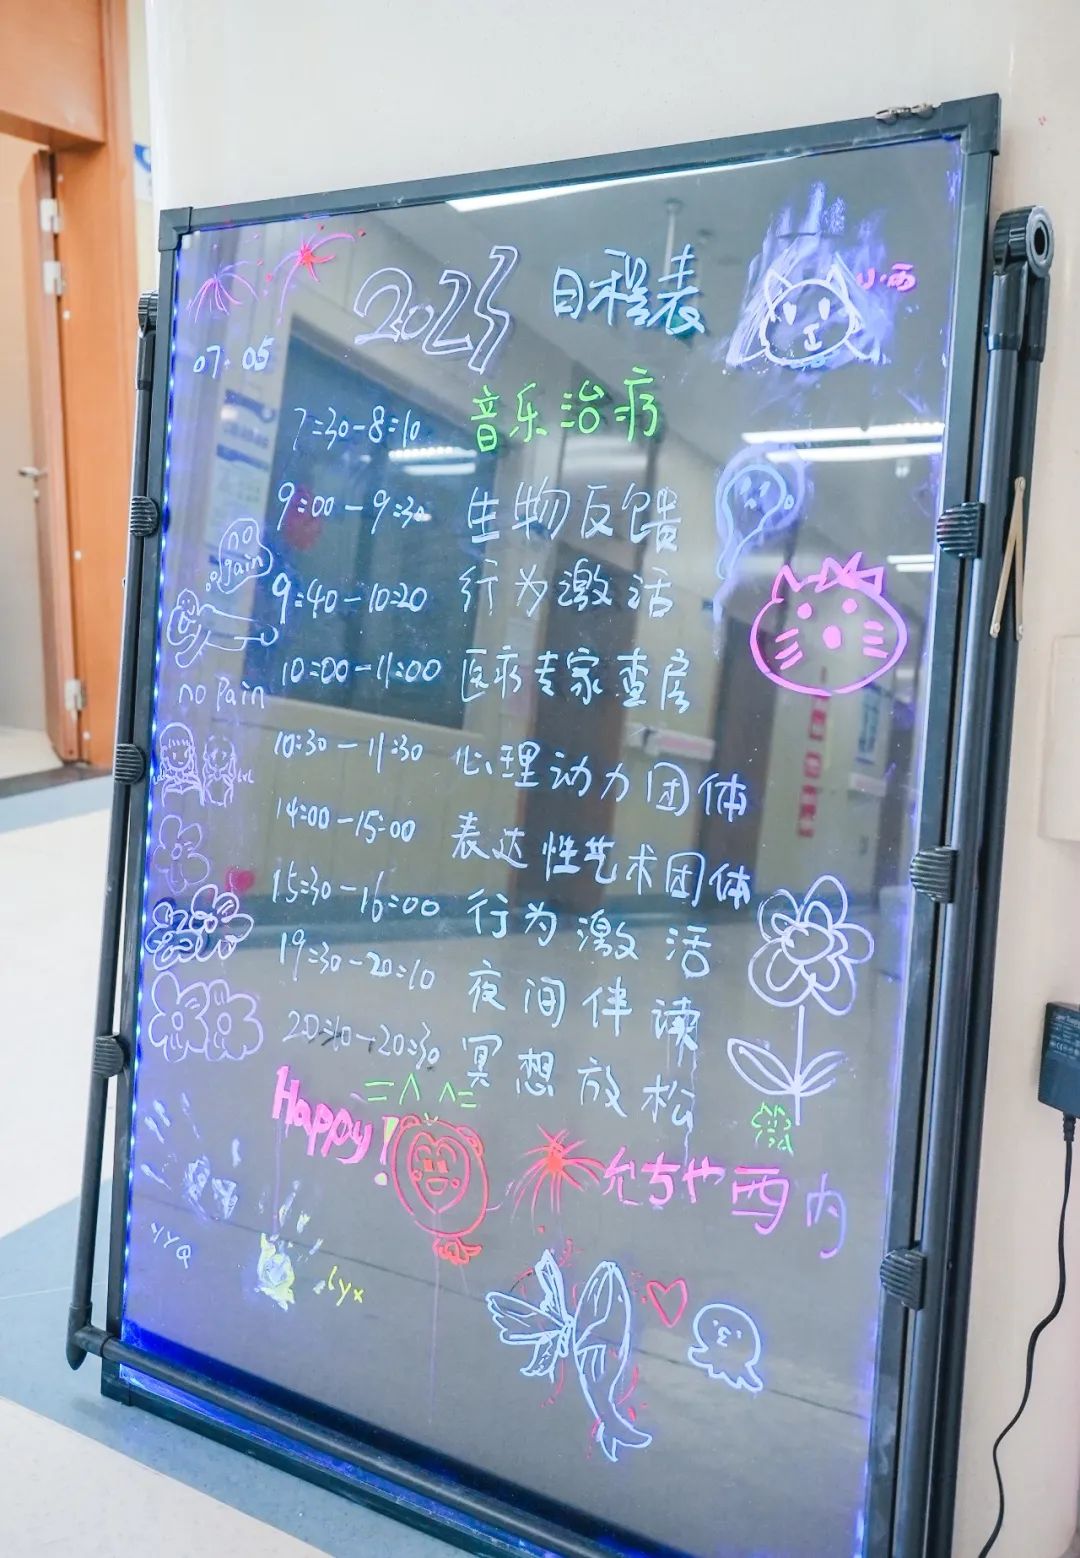 2023 日程表
小西
07.05
7:30-8:10 音乐治疗
9:00-9:30 生物反馈
9:40-10:20 行为激活
10:00-11:00 医疗专家查房
10:30-11:30 心理动力团体
14:00-15:00 表达性艺术团体
15:30-16:00 行为激活
19:30-20:10 夜间伴读
20:10-20:30 冥想放松
no pain
no Pain
Happy!
西内
YYQ
lyx